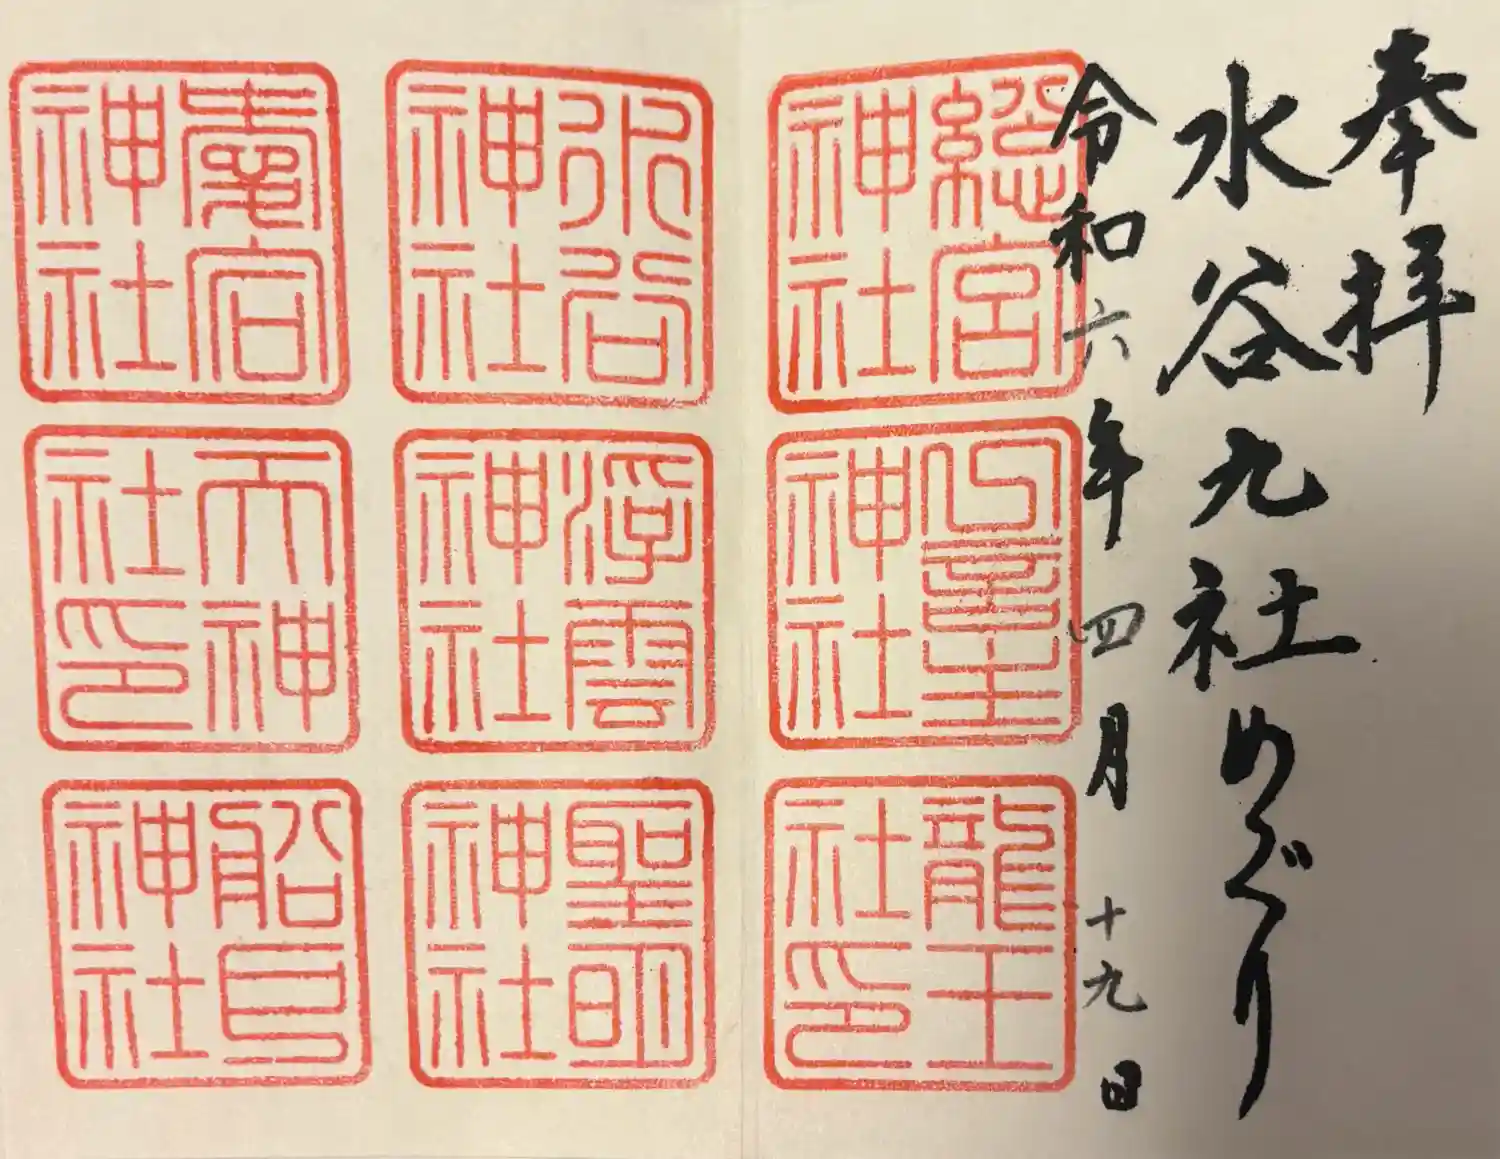 奉拝
水谷九社めぐり
令和六年四月十九日
総宮神社
一言主神社
龍王社印
水谷神社
浮雲神社
聖明神社
愛宕神社
天神社印
船戸神社